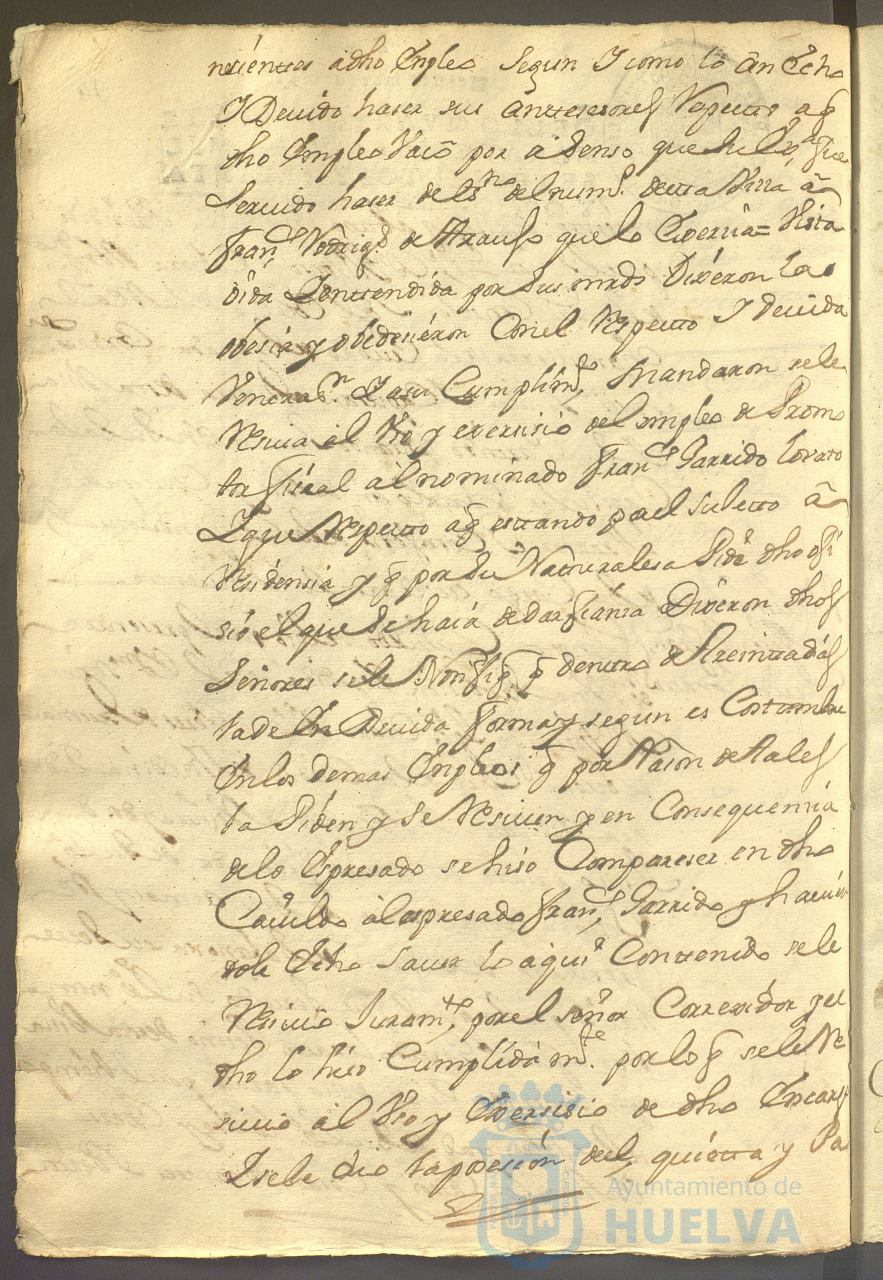 nesientes a dho Enpleo Segun Y como lo an Echo
Y Devido haser sus Antesesores Respecto a q̃
dho Empleo Vacò por asenso que Su Exª fue
Servido haser de Essno del numº desta Villa à
Franco Rodrigs de Araujo que lo Exersia = Vista
oida Y entendida por Sus mrds Dixeron la
obesian y obedesieron Con el Respecto Y devida
Venerasn Y a su Cumplimto Mandaron se le
Resiva al Uso y exersisio del empleo de Promo
tor fiscal àl nominado Franco Garrido Lovato
Y que Respecto a q̃ estando por el Sujecto à
Residensia y q̃ por Su Naturalesa Pide dho ofi
sio el que Se haia de dar fiansa Dixeron dhos
Señores se le Notifiq q̃ dentro de treinta dias
la de En Devida forma y segun es Costumbre
En los demas Enpleos q̃ por Rason de tales
la Piden y Se Resiven y en Consequensia
de lo Espresado se hiso Compareser en dho
Cavildo àl espresado Franco Garrido y hacien
dole Echo Saver lo aqui Contenido se le
Resivio Juramto por el señor Correxidor y el
dho lo hiso Cumplidamte por lo q̃ se le Re
sivio àl Uso y Exersisio de dho Encargo
Y se le dio la posesión del, quieta y Pa
Ayuntamiento de
HUELVA